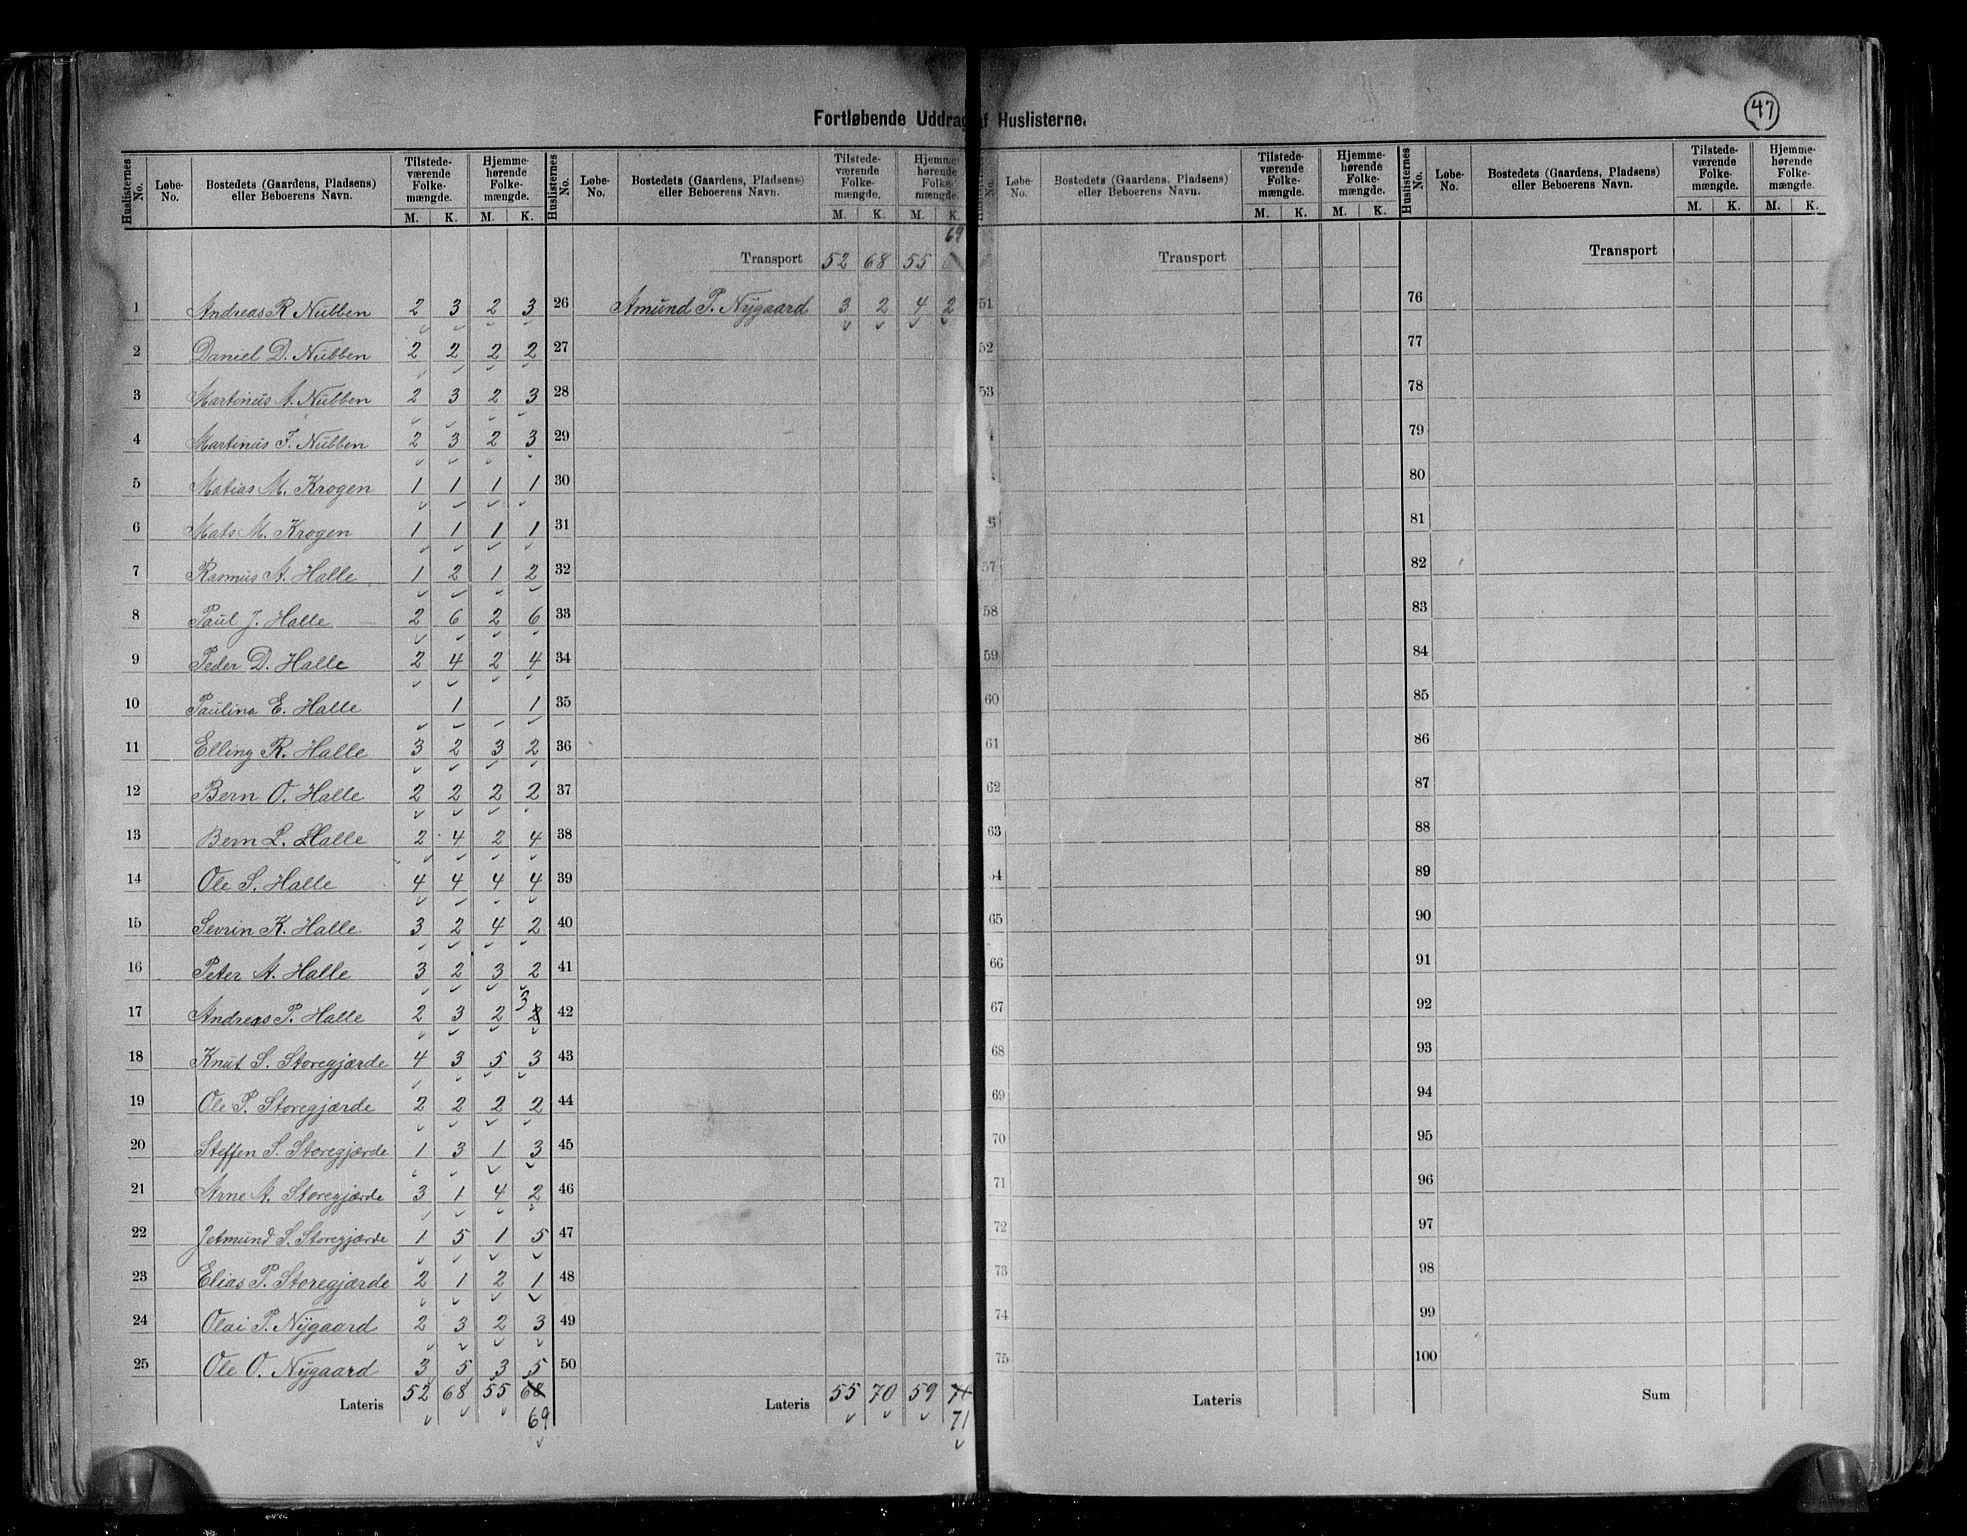 47
Fortløbende Uddrag af Huslisterne.
Huslisternes No. Løbe-No. Bostedets (Gaardens, Pladsens) eller Beboerens Navn. Tilstedeværende Folkemængde. M. K. Hjemmehørende Folkemængde. M. K.
Huslisternes No. Løbe-No. Bostedets (Gaardens, Pladsens) eller Beboerens Navn. Tilstedeværende Folkemængde. M. K. Hjemmehørende Folkemængde. M. K.
Løbe-No. Bostedets (Gaardens, Pladsens) eller Beboerens Navn. Tilstedeværende Folkemængde. M. K. Hjemmehørende Folkemængde. M. K.
Huslisternes No. Løbe-No. Bostedets (Gaardens, Pladsens) eller Beboerens Navn. Tilstedeværende Folkemængde. M. K. Hjemmehørende Folkemængde. M. K.
1 Andreas R Nubben 2 3 2 3
2 Daniel D. Nubben 2 2 2 2
3 Martinus A. Nubben 2 3 2 3
4 Martinus F. Nubben 2 3 2 3
5 Matias M. Krogen 1 1 1 1
6 Mats M. Krogen 1 1 1 1
7 Rasmus A. Halle 1 2 1 2
8 Paul J. Halle 2 6 2 6
9 Peder D. Halle 2 4 2 4
10 Pauline E. Halle 1 1
11 Elling R. Halle 3 2 3 2
12 Bern O. Halle 2 2 2 2
13 Bern L. Halle 2 4 2 4
14 Ole S. Halle 4 4 4 4
15 Sevrin K. Halle 3 2 4 2
16 Peter A. Halle 3 2 3 2
17 Andreas P. Halle 2 3 2 2 3
18 Knut S. Storegjærde 4 3 5 3
19 Ole P. Storegjærde 2 2 2 2
20 Steffen S. Storegjærde 1 3 1 3
21 Arne A. Storegjærde 3 1 4 2
22 Jetmund S. Storegjærde 1 5 1 5
23 Elias P. Storegjærde 2 1 2 1
24 Olai P. Nygaard 2 3 2 3
25 Ole O. Nygaard 3 5 3 5
Lateris 52 68 55 68
69
69
Transport 52 68 55
26 Amund P. Nygaard 3 2 4 2
27
28
29
30
31
32
33
34
35
36
37
38
39
40
41
42
43
44
45
46
47
48
49
50
Lateris 55 70 59
71
Transport
51
52
53
57
58
59
60
61
62
63
65
66
67
68
69
70
71
72
73
74
75
Lateris
Transport
76
77
78
79
80
81
82
83
84
85
86
87
88
89
90
91
92
93
94
95
96
97
98
99
100
Sum